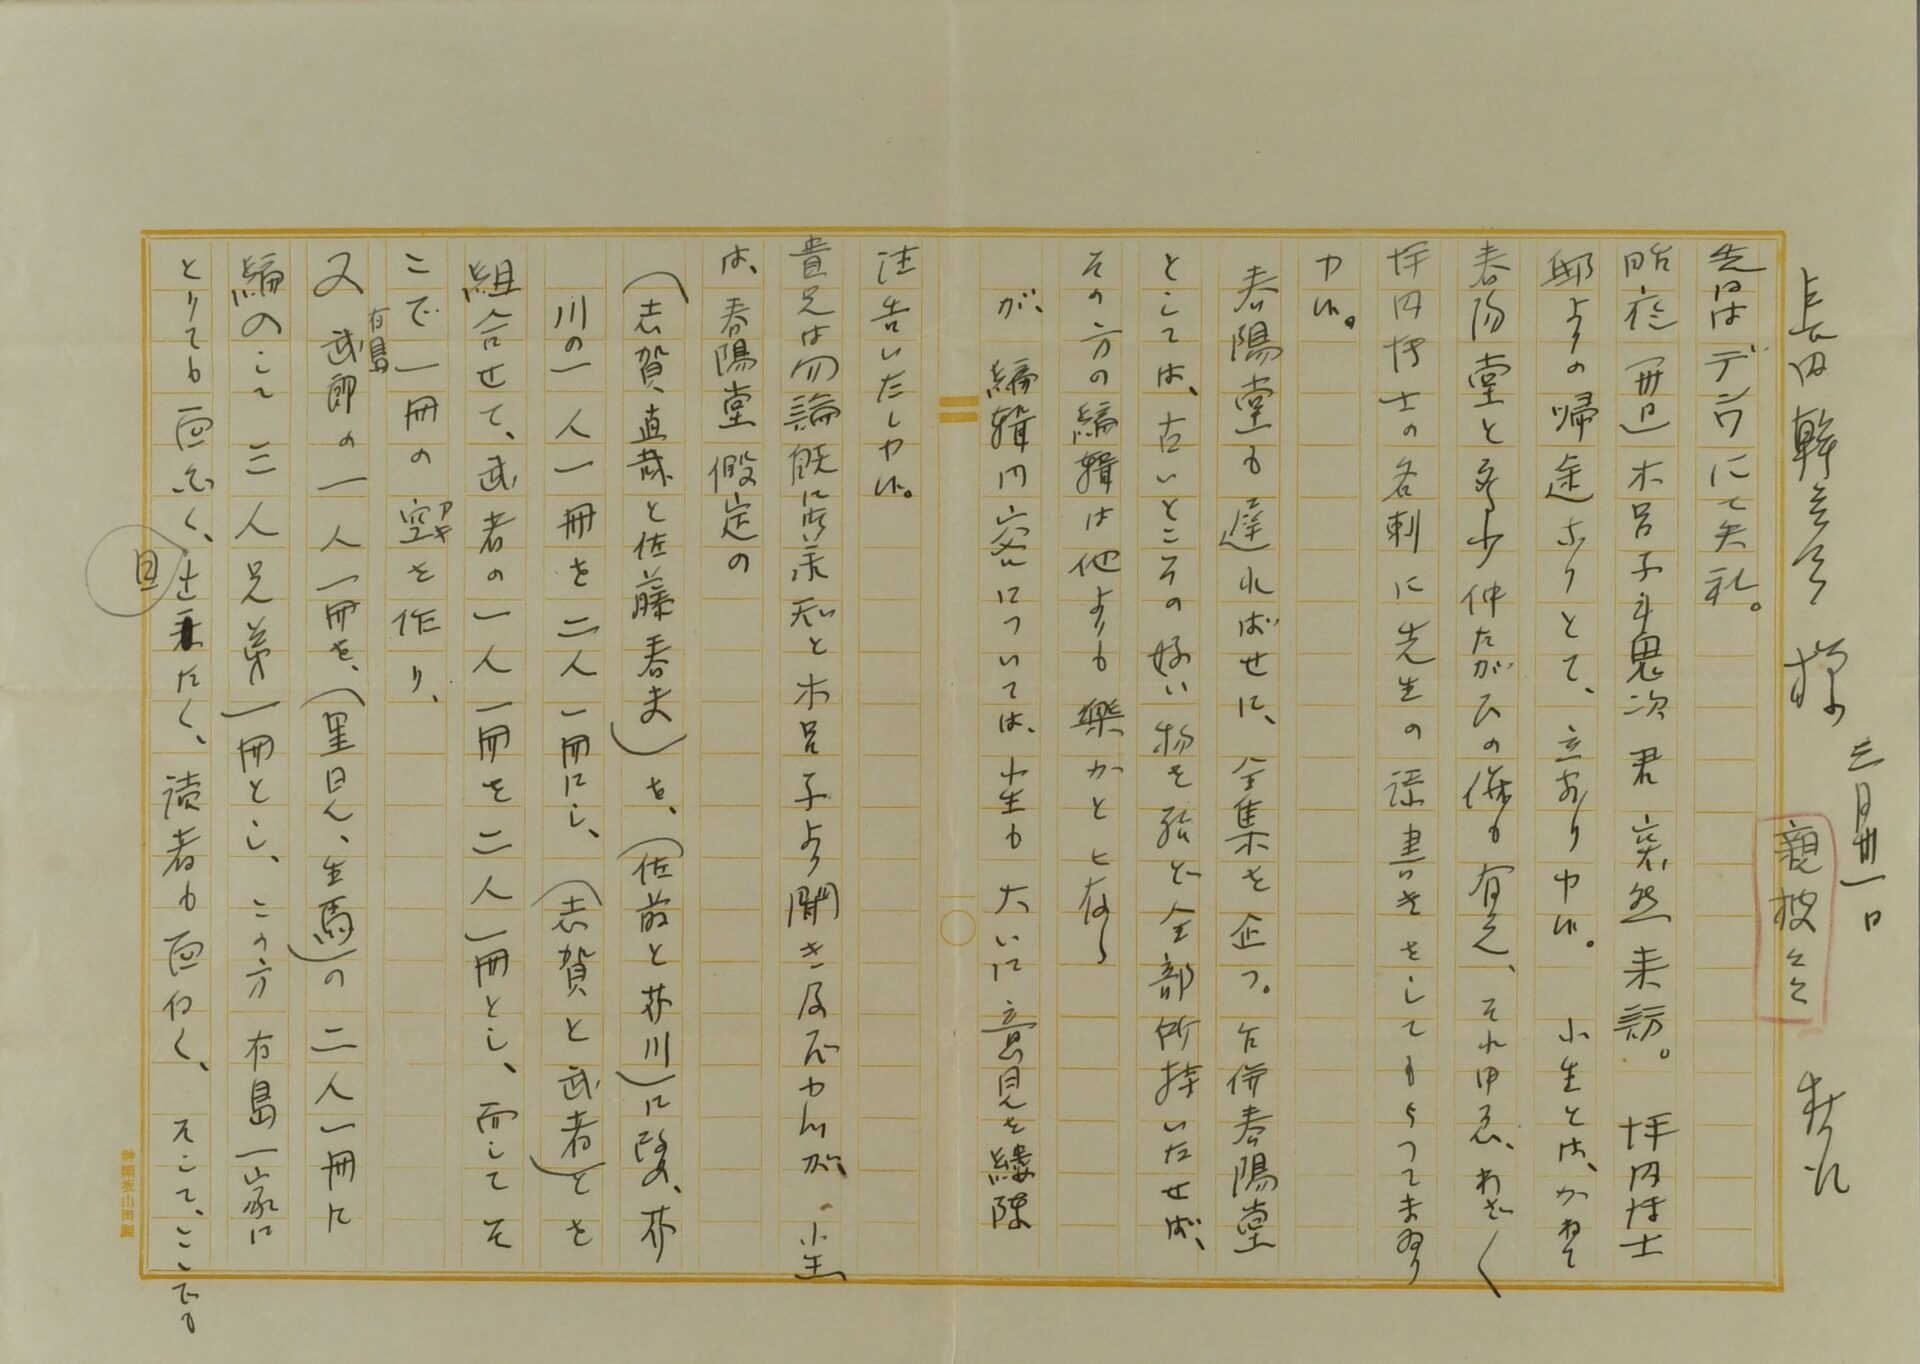 三月卅一日
長田幹彦 様
親披
先日はデンワにて失礼。
昨夜(卅日)木呂子斗鬼次君 突然来訪。 坪内博士
邸よりの帰途なりとて、立寄り申候。 小生とは、かねて
春陽堂と多少仲たがひの係も有之、それ申ゑ、わざ〱
坪内博士の名刺に先生の添書きをしてもらつてまゐり
申候。
春陽堂も遅ればせに、全集を企つ。乍併春陽堂
としては、古いところの好い物を殆ど全部所持いたせば、
その方の編輯は他よりも樂かと被存候
が、編輯内容については、小生も大いに意見を縷陳
注告いたし申候。
貴兄は勿論既に御承知と木呂子より聞き及び申候が、小生
は、春陽堂假定の
(志賀、直哉と佐藤春夫)を、(佐藤と芥川)に改め、芥
川の一人一冊を二人一冊にし、(志賀と武者)とを
組合せて、武者の一人一冊を二人一冊とし、而してそ
こで一冊の空アキを作り、
又 有島武郎の一人一冊を、(里見、生馬)の二人一冊に
編のこし三人兄弟一冊とし、この方有島一家に
とりても面白く、出来たく、読者も面白く、 そこで、ここでも
神樂坂山田製